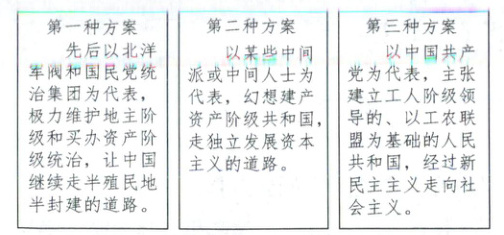 第一种方案
先后以北洋
军阀和国民党统
治集团为代表，
极力维护地主阶
级和买办资产阶
级统治，让中国
继续走半殖民地
半封建的道路。
第二种方案
以某些中间
派或中间人士为
代表，幻想建产
资产阶级共和国，
走独立发展资本
主义的道路。
第三种方案
以中国共产
党为代表，主张
建立工人阶级领
导的、以工农联
盟为基础的人民
共和国，经过新
民主主义走向社
会主义。